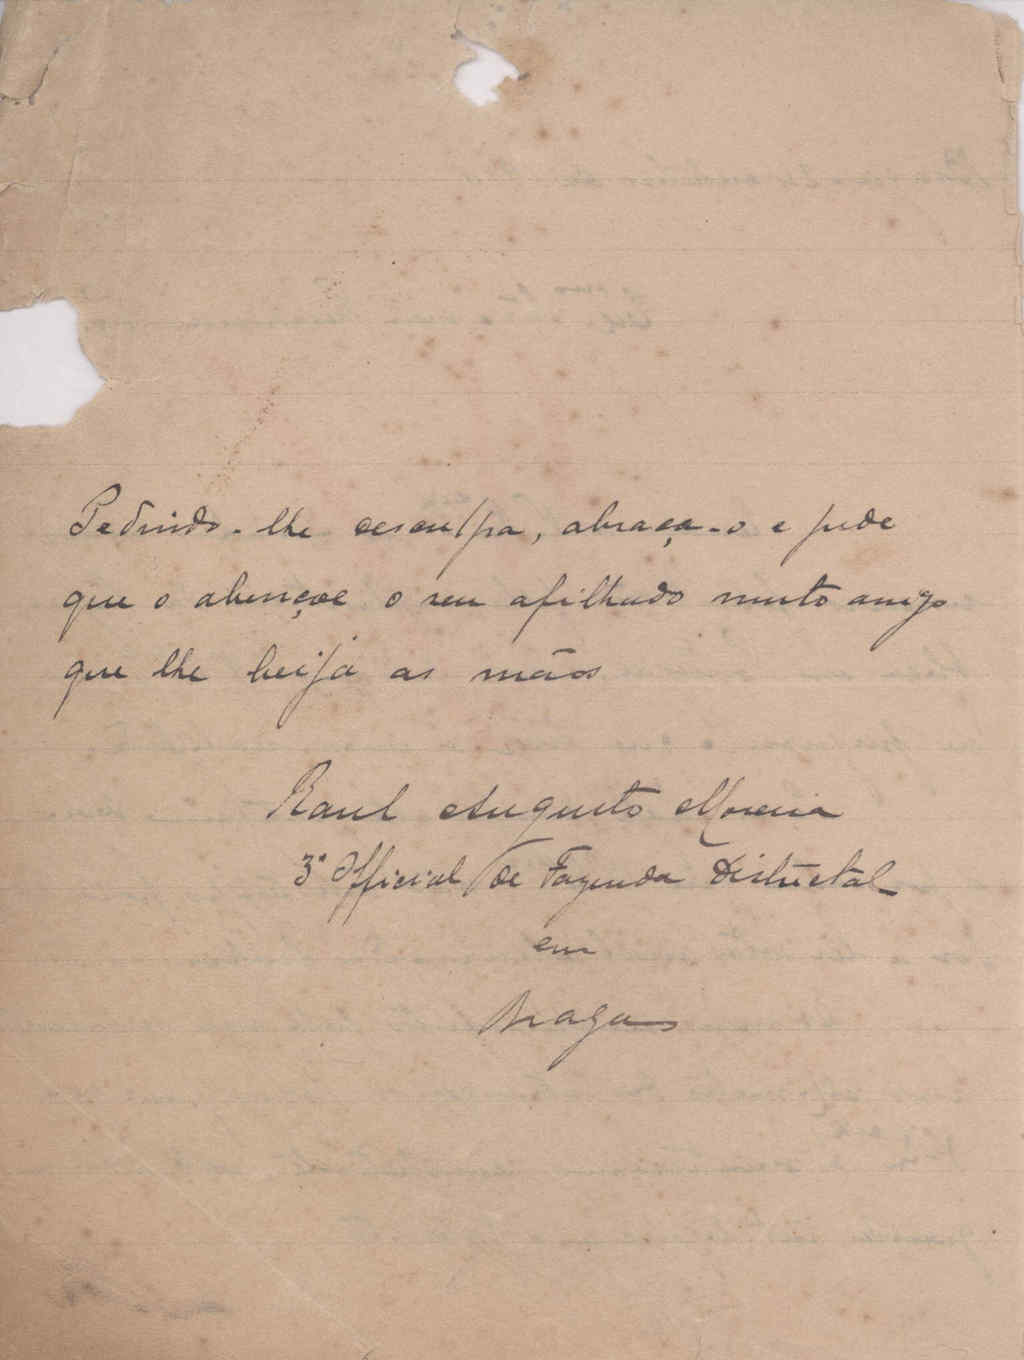 Pedindo-lhe desculpa, abraça-o e pede
que o abençoe o seu afilhado muito amigo
que lhe beija as mãos
Raul Augusto Moreira
3º Official de Fazenda Districtal
em
Braga